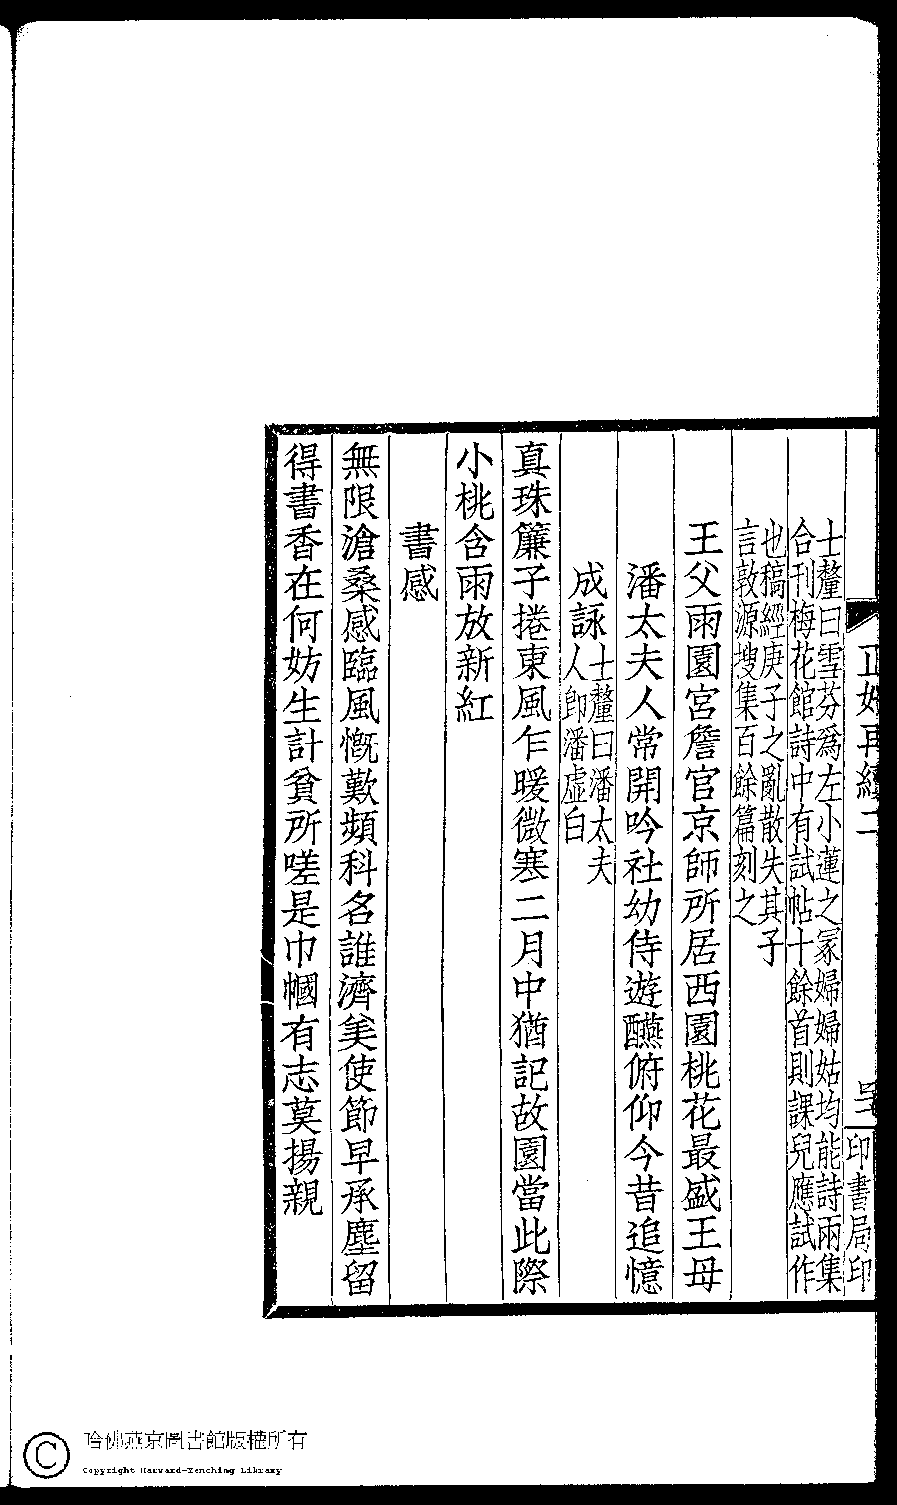 正始再續二
印書局印
士釐曰雪芬爲左小蓮之冢婦婦姑均能詩兩集
合刊梅花館詩中有試帖十餘首則課兒應試作
也稿經庚子之亂散失其子
言敦源搜集百餘篇刻之
王父雨園宮詹官京師所居西園桃花最盛王母
潘太夫人常開吟社幼侍遊醼俯仰今昔追憶
成詠
士釐曰潘太夫
人卽潘虛白
真珠簾子捲東風乍暖微寒二月中猶記故園當此際
小桃含雨放新紅
書感
無限滄桑感臨風慨歎頻科名誰濟美使節早承塵留
得書香在何妨生計貧所嗟是巾幗有志莫揚親
哈佛燕京圖書館版權所有
Copyright Harvard-Yenching Library